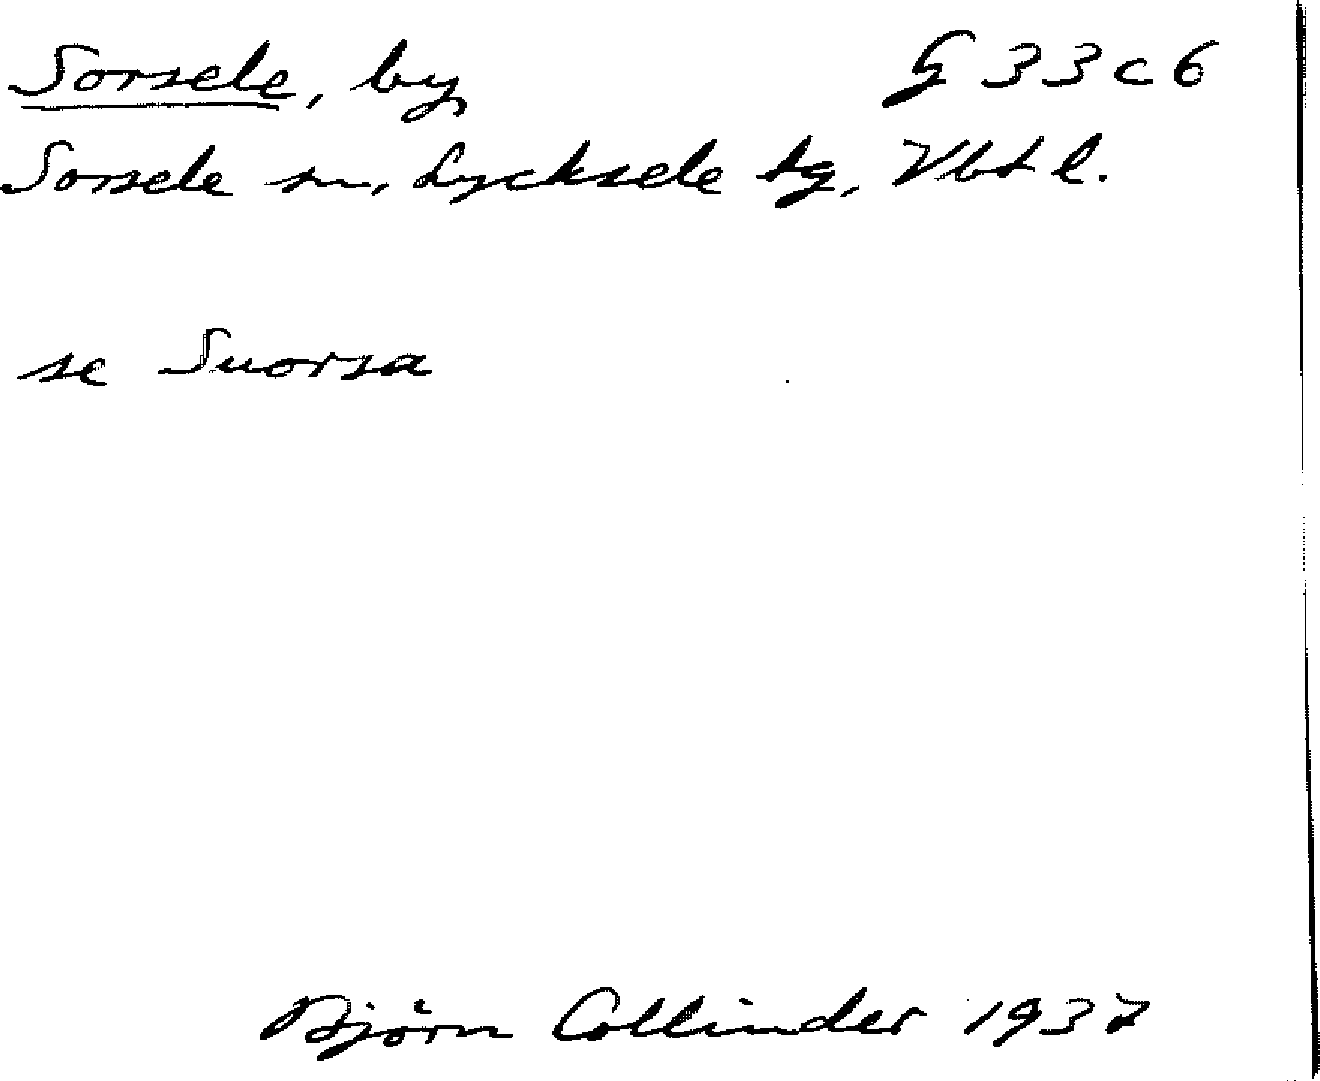 Sorsele, by G 33 c 6
Sorsele sn, Lycksele tg, Vbt l.
se Suorsa
Björn Collinder 1937